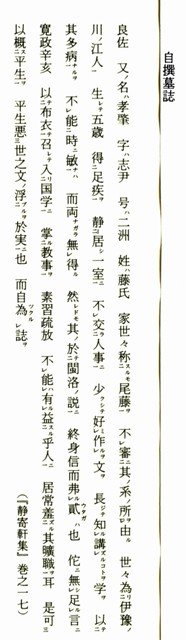 自撰墓誌
良佐 又ノ名ハ孝肇 字ハ志尹 号ハ二洲 姓ハ藤氏 家世々称スルモ尾藤ト 不レ審ニ其ノ系ノ所ヲ一レ由ル 世々為リ伊豫ノ
川ノ江人一 生レテ五歳 得ニ足疾ヲ一 静ニ居シ一室ニ一 不レ交ラ人事ニ一 少クシテ好ミレ作ルヲレ文ヲ 長ジテ知ルレ講ズルコトヲレ学ヲ 以テ
其多病ナルヲ一 不レ能ニ時ニ敏ナルハ一 而両ナガラ無シレ得ル 然レドモ其ノ於テニ閩洛ノ説ニ一 終身信而弗ルレ貳ウタガハ也 佗ニ無シレ足ルレ言ニ
寛政辛亥 以テニ布衣ヲ一召レテ入リニ国学ニ一 掌ルニ教事ヲ一 素習疏放 不レ能ハレ有ルレ益スルニ乎人ニ一 居常羞ズルニ其曠職ヲ一耳 是可三
以概スニ平生ヲ一 平生悪ニ世之文ノ浮ブルヲニ於実ニ一也 而自為ツクルレ誌ヲ (『静寄軒集』巻之一七)